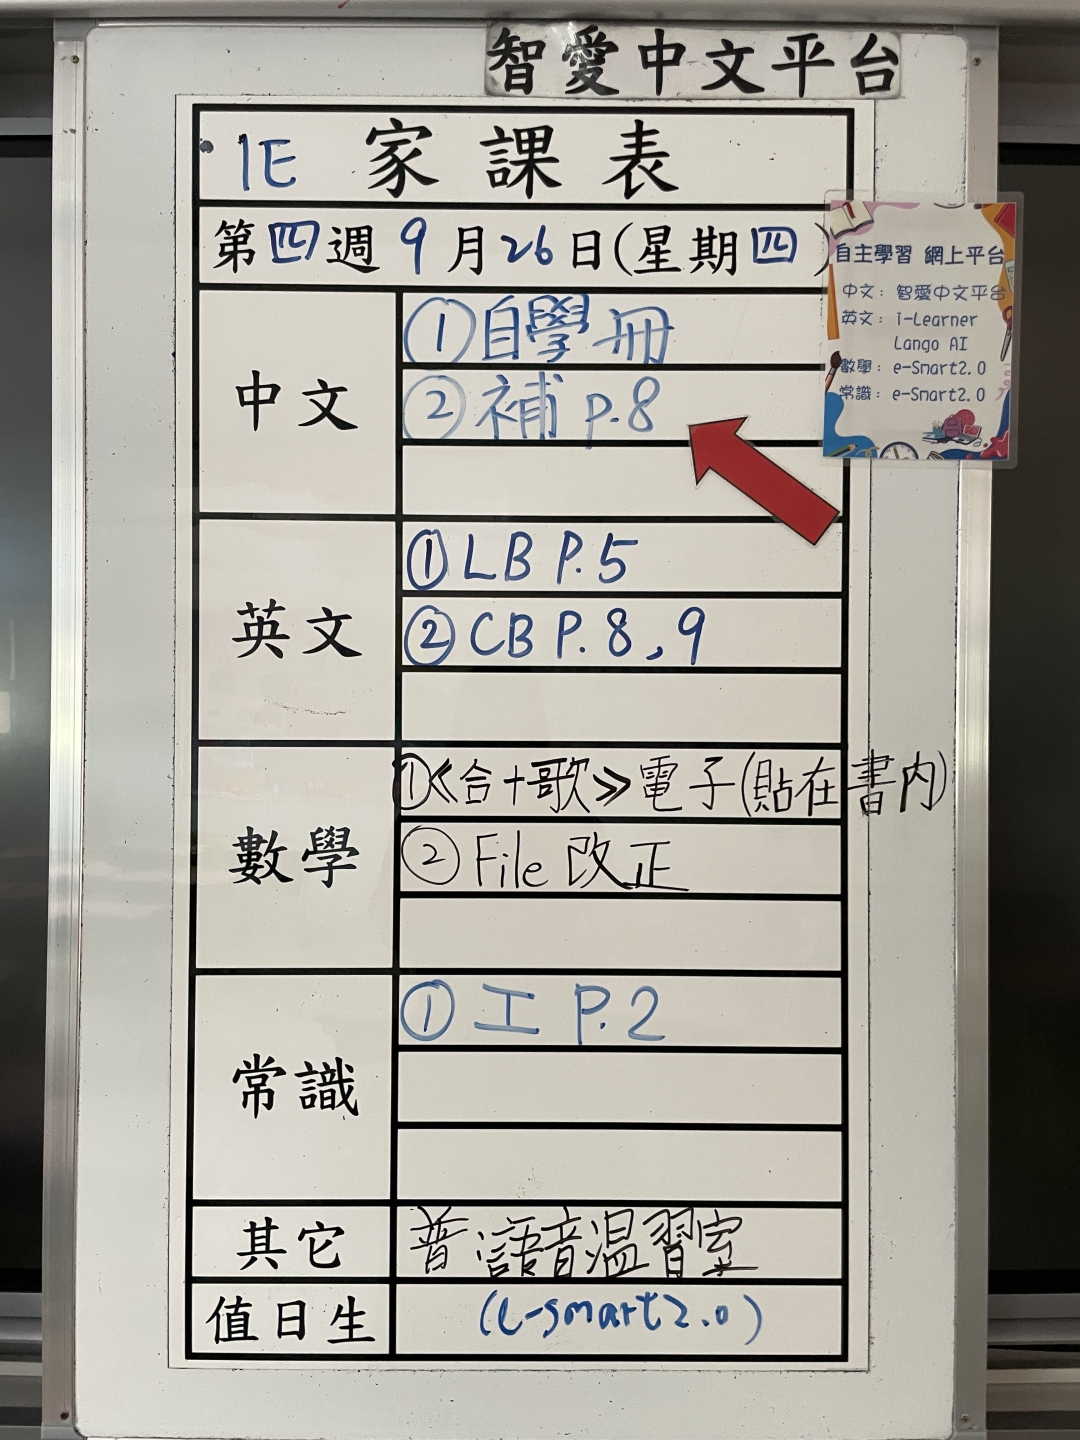 智愛中文平台
1E 家課表
第四週9月26日(星期四)
自主學習 網上平台
中文：智愛中文平台
英文：i-Learner
Lango AI
數學：e-Smart2.0
常識：e-Smart2.0
中文
①自學冊
②補 p.8
英文
①LB P.5
②CB P.8,9
數學
①≪合十歌≫電子(貼在書內)
②File 改正
常識
①工 P.2
其它
普:語音溫習室
值日生
(e-smart2.0)